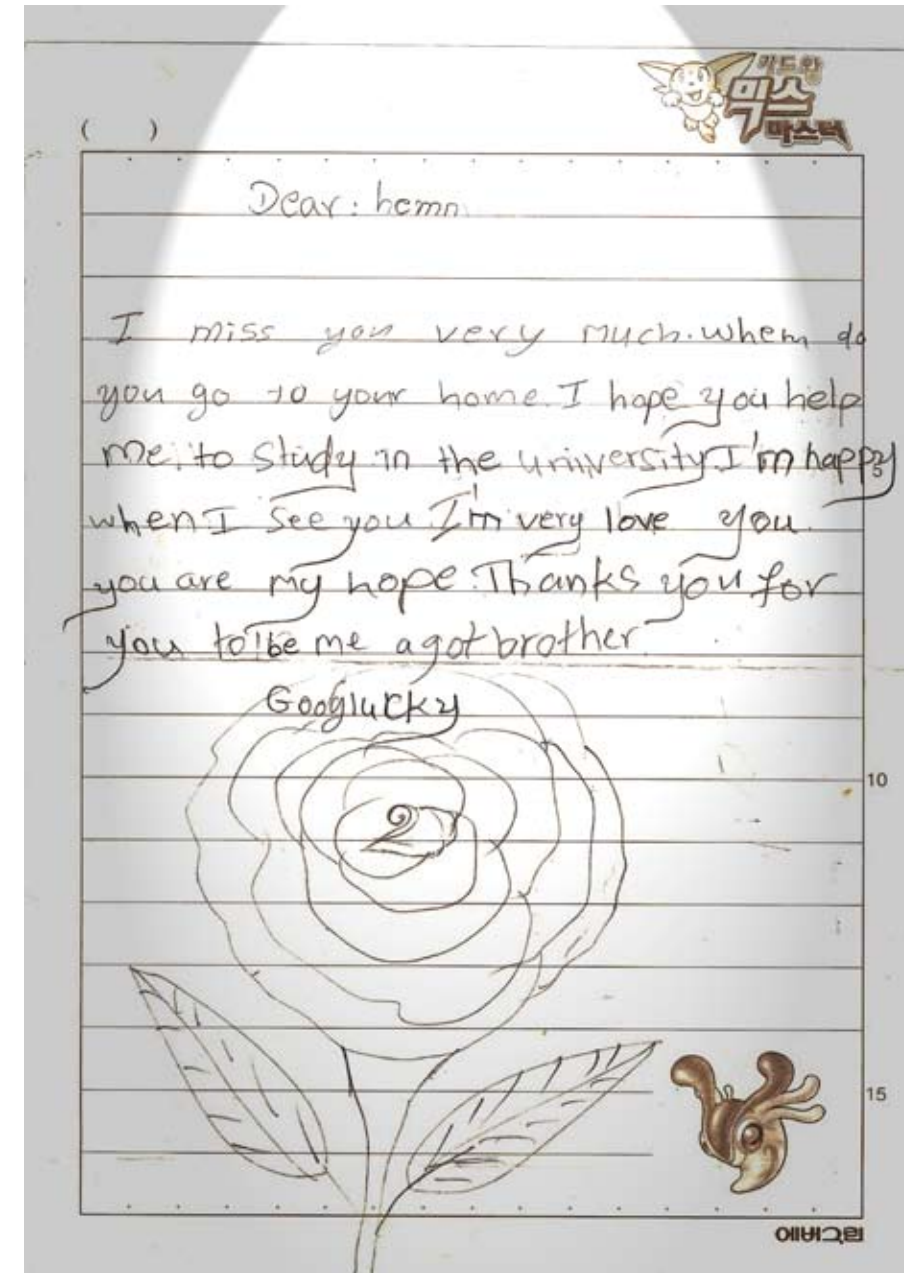 카드왕
믹스
마스터
( )
Dear : hemn
I miss you very much. whem do
you go to your home. I hope you help
me. to study in the university I'm happy
5
when I see you. I'm very love you.
you are my hope. Thanks you for
you to be me a got brother.
Googlucky
10
15
에버그린